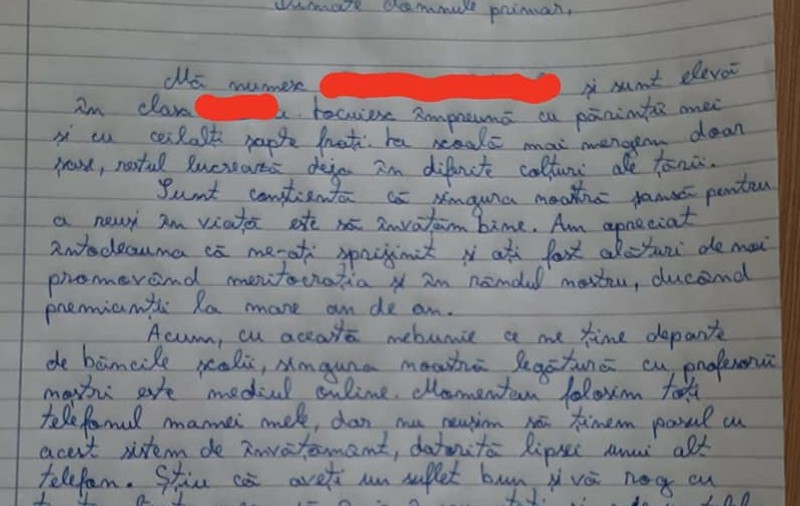 Stimate domnule primar,
Mă numesc și sunt elevă
în clasa a. Locuiesc împreună cu părinții mei
și cu ceilalți șapte frați. La școală mai mergem doar
șase, restul lucrează deja în diferite colțuri ale țării.
Sunt conștientă că singura noastră șansă pentru
a reuși în viață este să învățăm bine. Am apreciat
întodeauna că ne-ați sprijinit și ați fost alături de noi
promovând meritocrația și în rândul nostru, ducând
premianții la mare an de an.
Acum, cu această nebunie ce ne ține departe
de băncile școlii, singura noastră legătură cu profesorii
noștri este mediul online. Momentan folosim toți
telefonul mamei mele, dar nu reușim să ținem pasul cu
acest sistem de învățământ, datorită lipsei unui alt
telefon. Știu că aveți un suflet bun și vă rog cu